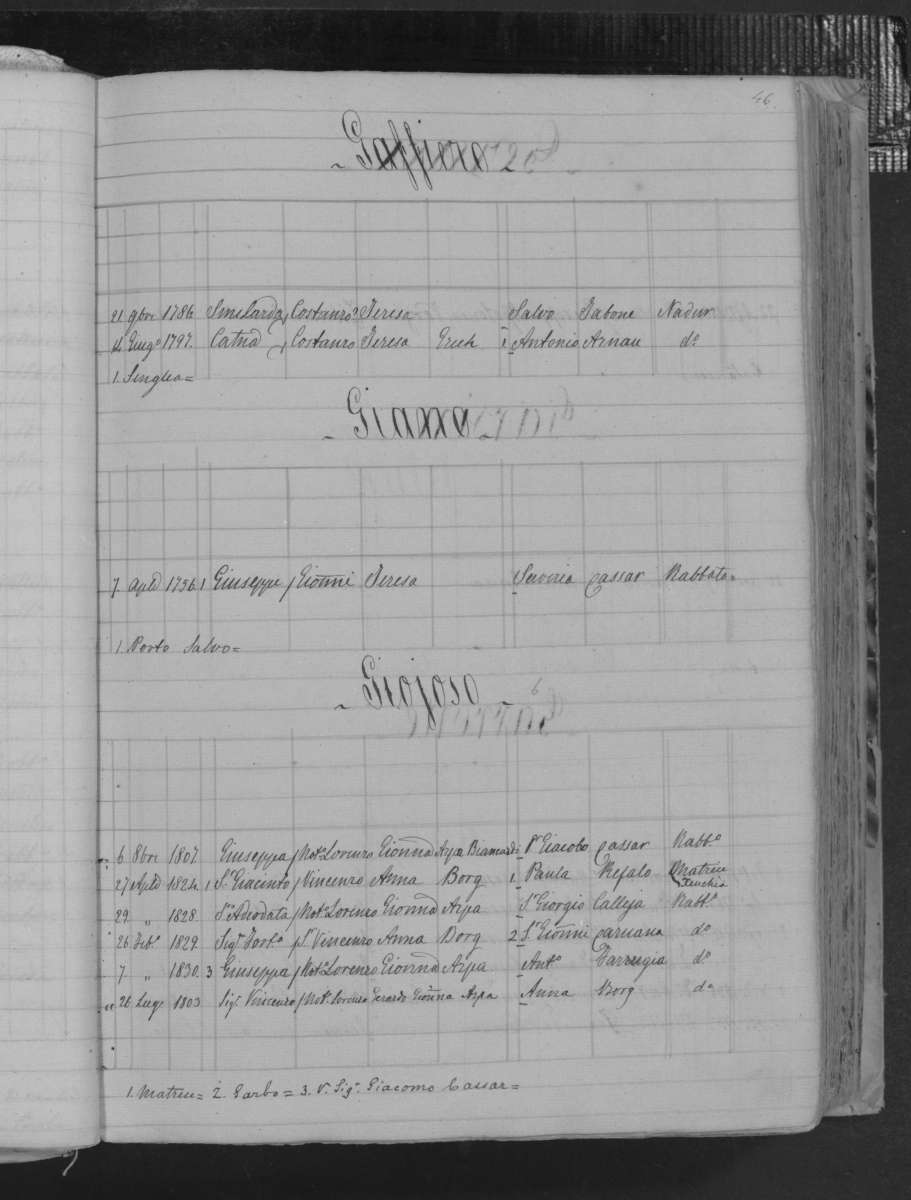 46.
Gaffiero 2
21 9bre 1786 Smelarda / Costanzo Teresa Salvo Tabone Nadur
4 Lug.o 1797. Catna / Costanzo Teresa Erich 1 Antonio Aznau do
1. Senglea =
Giaxxo
7. Aple 1756 1 Giuseppe / Gionni Teresa Saveria Cassar Rabbato.
1. Porto Salvo =
Giojoso 6
6 8bre 1807 Giuseppa / Not.o Lorenzo Gionna Arpa Va Giacobo Cassar Rabb.o
27 Aple 1824 1 Sr Giacinto / Vincenzo Anna Borg 1 Paula Refalo Matrice
29 " 1828. Sra Adeodata / Not.o Lorenzo Gionna Arpa Sr Giorgio Calleja Rabb.o
26 Feb.o 1829. Sigr Fort.o / Sr Vincenzo Anna Borg 2 Sra Gionni Caruana do
7 " 1830. 3 Giuseppa / Not.o Lorenzo Gionna Arpa Ant.o Farrugia do
26 Lug. 1803 Sigr Vincenzo / Not.o Lorenzo Gerardo Gionna Arpa Anna Borg do
1. Matrice = 2. Garbo = 3. Va Sigr Giacomo Cassar =